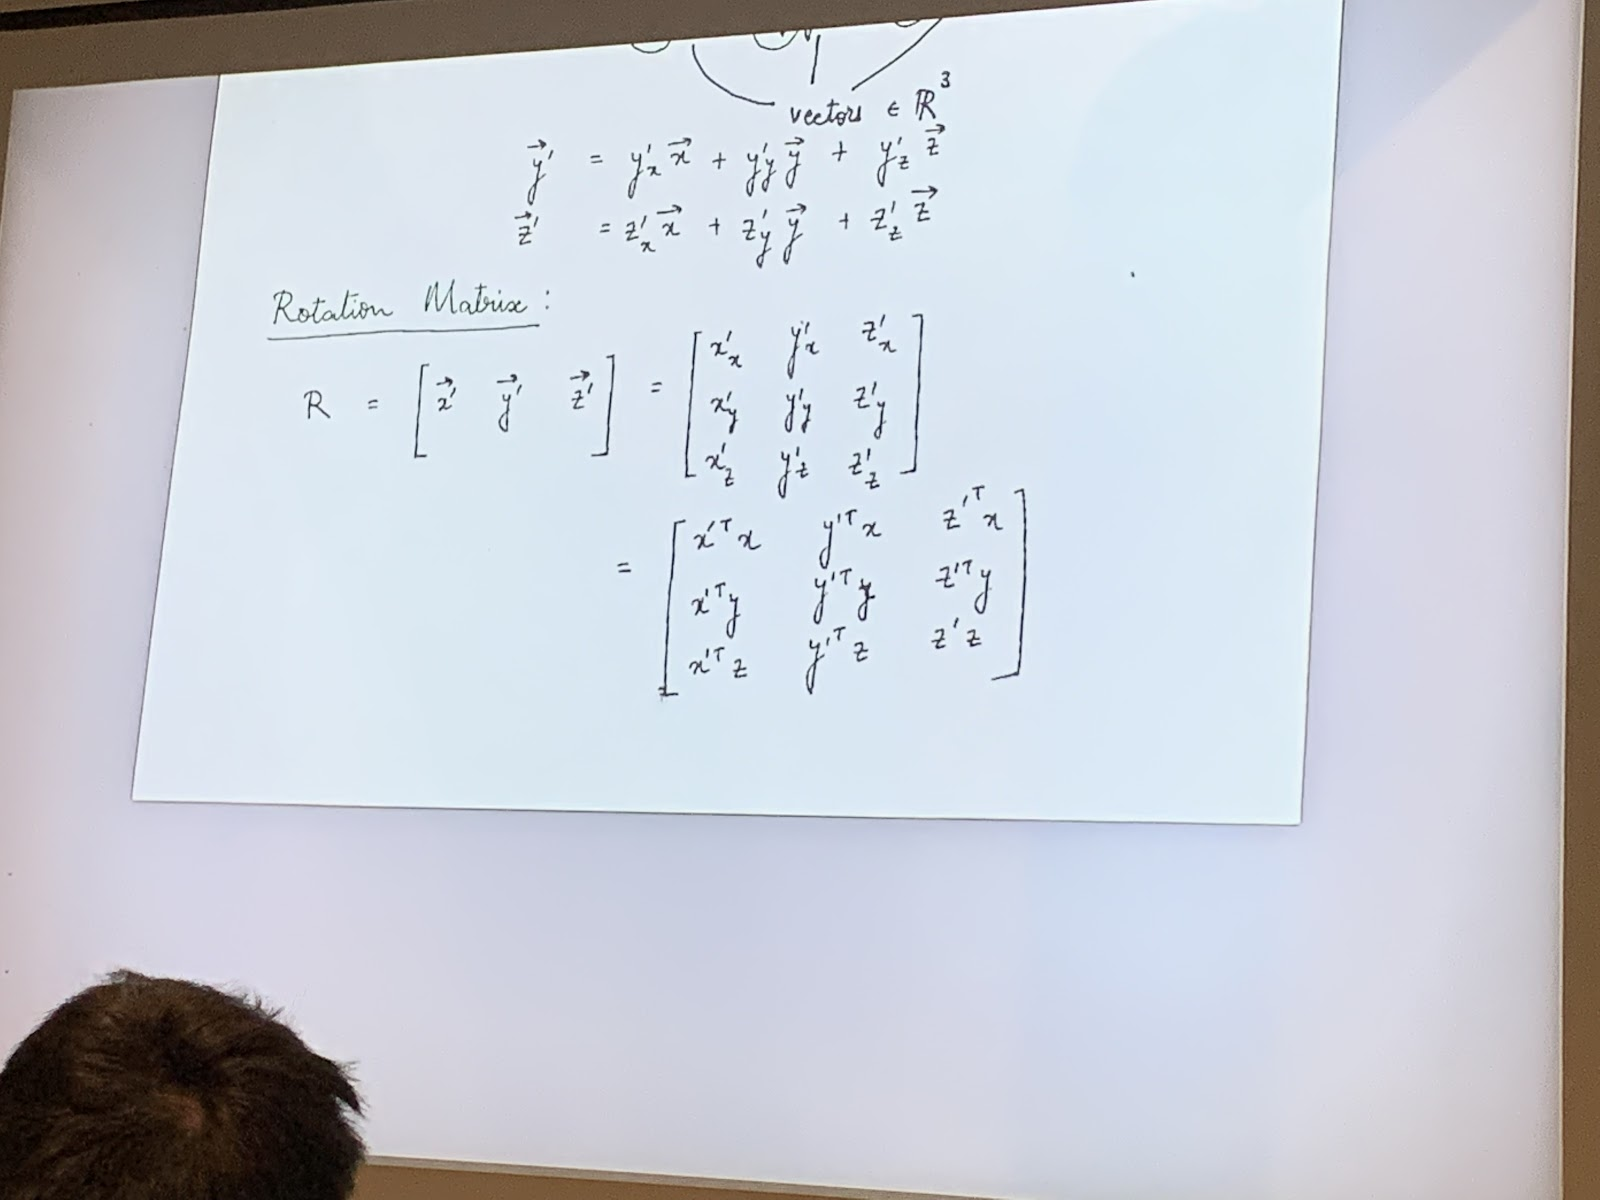 vectors ∈ ℝ³
y⃗' = y'ₓ x⃗ + y'_y y⃗ + y'_z z⃗
z⃗' = z'ₓ x⃗ + z'_y y⃗ + z'_z z⃗
Rotation Matrix :
R = [ x⃗' y⃗' z⃗' ] = [ x'ₓ y'ₓ z'ₓ
x'_y y'_y z'_y
x'_z y'_z z'_z ]
= [ x'ᵀx y'ᵀx z'ᵀx
x'ᵀy y'ᵀy z'ᵀy
x'ᵀz y'ᵀz z'z ]